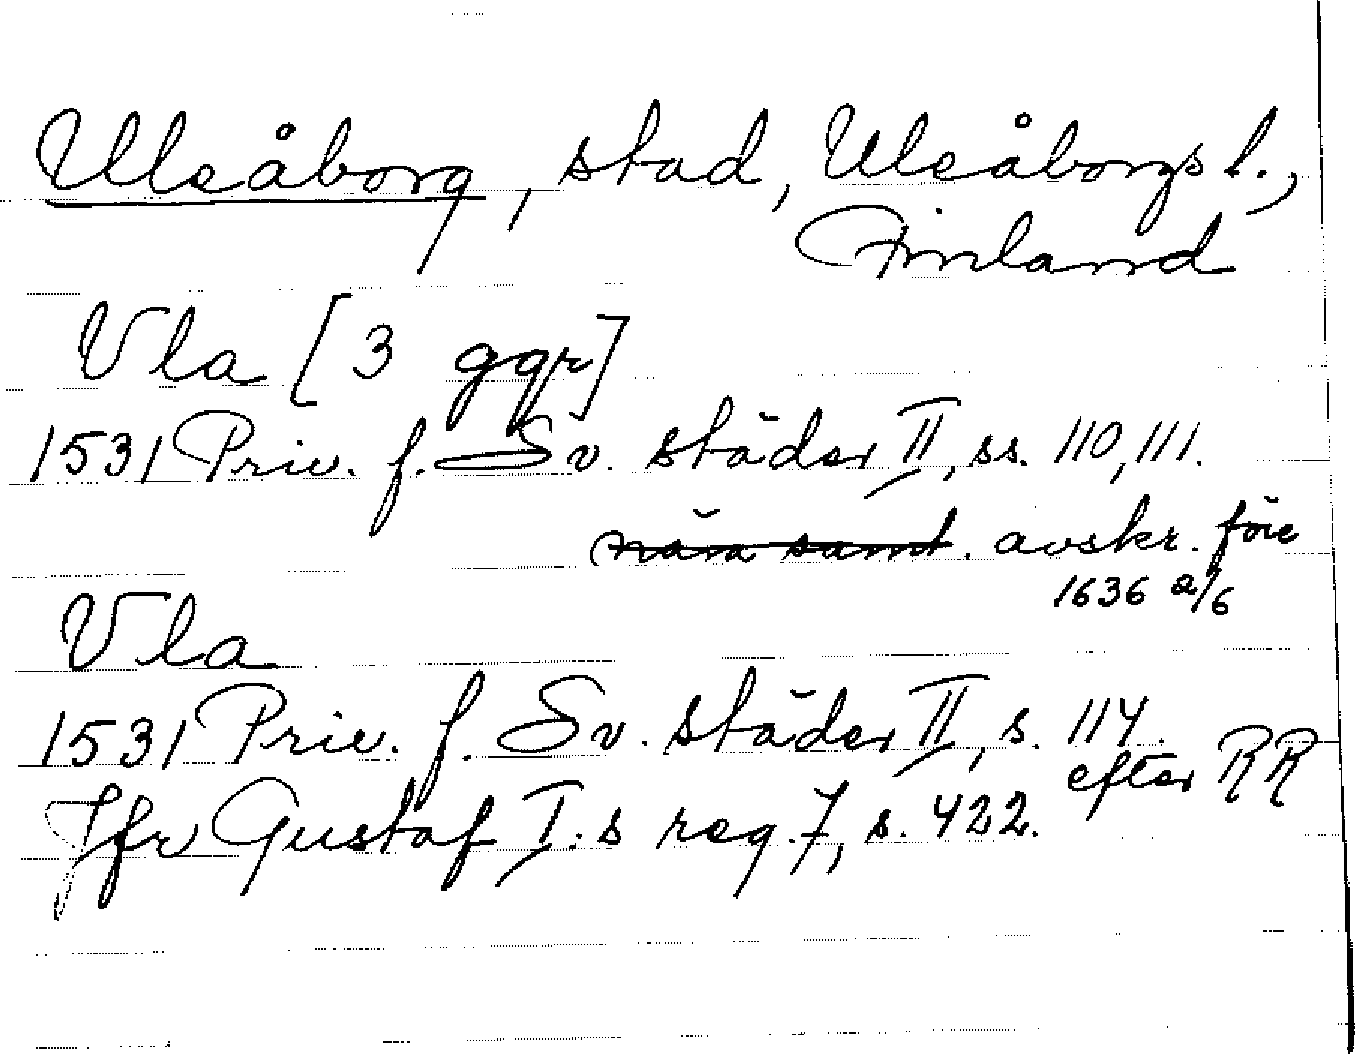 Uleåborg, stad, Uleåborgs l.,
Finland
Vla [3 ggr]
1531 Priv. f. Sv. städer II, ss. 110, 111.
avskr. före
1636 2/6
Vla
1531 Priv. f. Sv. städer II, s. 114.
efter RR
Jfr Gustaf I:s reg. 7, s. 422.